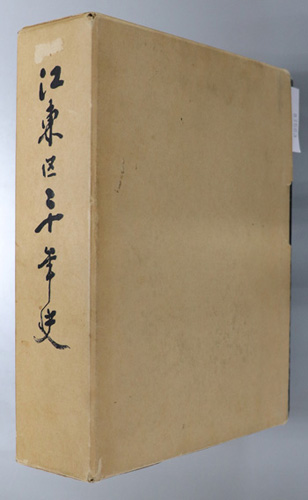 江東区二十年史